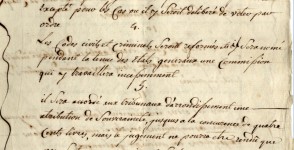 excepté pour les Cas ou il y Seroit délibéré de voter par
ordre
4.
Les Codes civils et criminels Seront reformés Sera nommé
pendant la tenue des Etats généraux une Commission
qui y travaillera incessamment
5.
il Sera accordé aux tribunaux d'arrondissement une
attribution de Souveraineté, jusques a la concurrence de quatre
Cents livres, mais le jugement ne pourra être rendu que